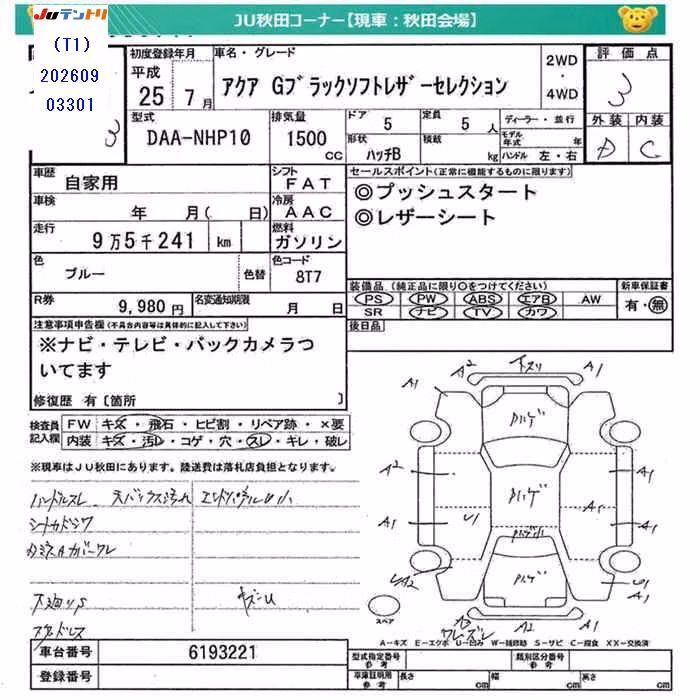 JUテントリ
JU秋田コーナー【現車：秋田会場】
(T1)
202609
03301
3
初度登録年月
平成
25 7月
車名・グレード
アクア Gブラックソフトレザーセレクション
2WD
・
4WD
評価点
3
型式
DAA-NHP10
排気量
1500
CC
ドア
5
定員
5 人
形状
ハッチB
積載
kg
ディーラー・並行
モデル年式 年
ハンドル 左・右
外装 内装
D C
車歴
自家用
シフト
FAT
車検
年 月( 日)
冷房
AAC
走行
9万5千241 km
燃料
ガソリン
色
ブルー
色替
色コード
8T7
R券
9,980円
名変通知期限
月 日
セールスポイント(正常に機能するものに限ります)
◎プッシュスタート
◎レザーシート
装備品(純正品に限り○をつけてください)
PS PW ABS エアB AW
SR ナビ TV カワ
新車保証書
有・無
後日品
注意事項申告欄(不具合内容等は具体的に記入して下さい)
※ナビ・テレビ・バックカメラつ
いてます
修復歴 有〔箇所 〕
検査員
記入欄
FW キズ・飛石・ヒビ割・リペア跡・×要
内装 キズ・汚レ・コゲ・穴・スレ・キレ・破レ
※現車はJU秋田にあります。陸送費は落札店負担となります。
ハンドルスレ 天バックス汚れ エンドパネルU小
キズU
A2 下スリ A1
A1
ハゲ
A2 ハゲ A1
A1 U1 A1
ハゲ
UA2 U1
A1
スペア
ワレズレ A2 A1
A-キズ E-エクボ U-凹み W-補修跡 S-サビ C-腐食 XX-交換済
車台番号
6193221
登録番号
型式指定番号
参考
類別区分番号
参考
車庫証明用
参考
長さ cm
幅 cm
高さ cm